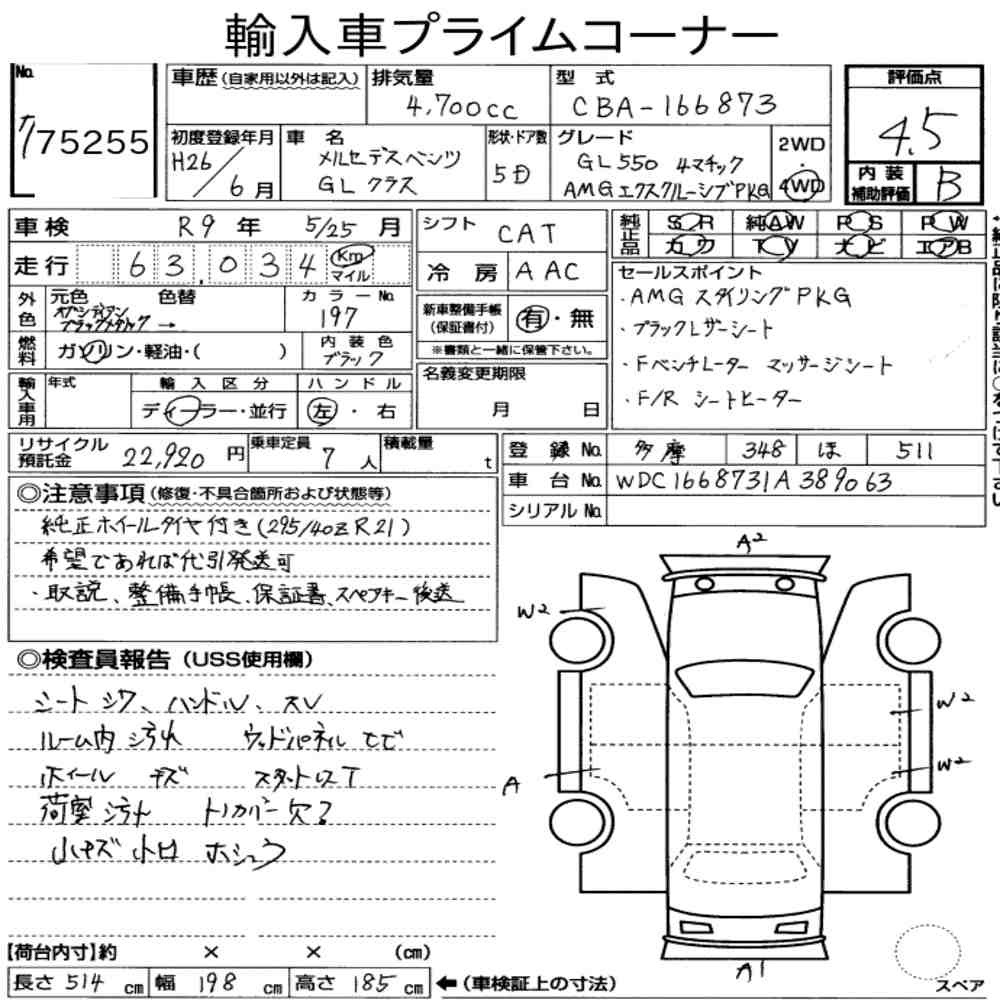 輸入車プライムコーナー
No. 775255
車歴(自家用以外は記入)
排気量 4,700cc
型式 CBA-166873
評価点 4.5
内装補助評価 B
初度登録年月 H26/6月
車名 メルセデスベンツ GLクラス
形状・ドア数 5D
グレード GL550 4マチック
AMGエクスクルーシブPKG
2WD
4WD
車検 R9年 5/25月
走行 63,034 Km マイル
シフト CAT
冷房 AAC
純正品 SR 純AW PS PW
カワ TV ナビ エアB
外色 元色 色替
オブシディアンブラックメタリック →
カラーNo. 197
燃料 ガソリン・軽油・( )
内装色 ブラック
新車整備手帳(保証書付) 有・無
※書類と一緒に保管下さい。
セールスポイント
・AMG スタイリングPKG
・ブラックレザーシート
・Fベンチレーター マッサージシート
・F/R シートヒーター
輸入車用 年式
輸入区分 ディーラー・並行
ハンドル 左・右
名義変更期限 月 日
リサイクル預託金 22,920円
乗車定員 7人
積載量 t
登録No. 多摩 348 ほ 511
車台No. WDC1668731A389063
シリアルNo.
◎注意事項(修復・不具合箇所および状態等)
純正ホイールタイヤ付き(295/40ZR21)
希望であれば代引発送可
・取説、整備手帳、保証書、スペアキー後送
◎検査員報告(USS使用欄)
シートシワ、ハンドル、スレ
ルーム内汚れ ウッドパネル ヒビ
ホイール キズ スタットレスT
荷室汚れ トノカバー欠?
小キズ 小凹 ホシュウ
A2
W2
W2
W2
A
A1
スペア
【荷台内寸】約 × × (cm)
長さ 514 cm 幅 198 cm 高さ 185 cm ←(車検証上の寸法)